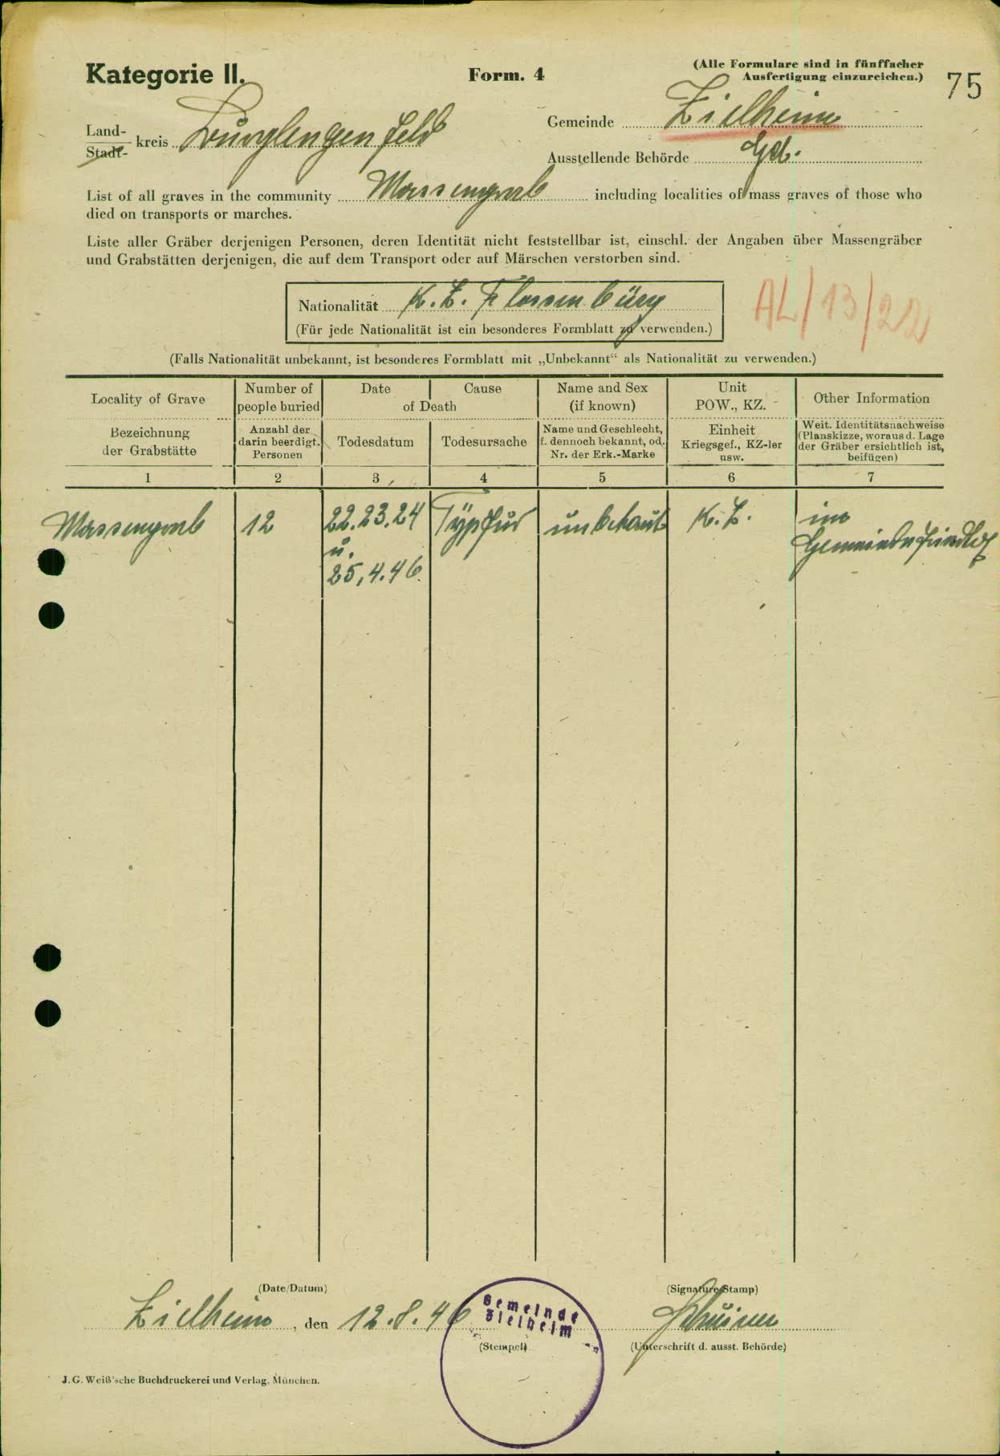 Kategorie II.
Form. 4
(Alle Formulare sind in fünffacher
Ausfertigung einzureichen.)
75
Land-
Stadt- kreis Burglengenfeld
Gemeinde Zielheim
Ausstellende Behörde Gd.
List of all graves in the community Massengrab including localities of mass graves of those who
died on transports or marches.
Liste aller Gräber derjenigen Personen, deren Identität nicht feststellbar ist, einschl. der Angaben über Massengräber
und Grabstätten derjenigen, die auf dem Transport oder auf Märschen verstorben sind.
Nationalität K.Z. Flossenbürg
(Für jede Nationalität ist ein besonderes Formblatt zu verwenden.)
AL/13/22
(Falls Nationalität unbekannt, ist besonderes Formblatt mit „Unbekannt“ als Nationalität zu verwenden.)
Locality of Grave
Bezeichnung
der Grabstätte
Number of
people buried
Anzahl der
darin beerdigt.
Personen
Date Cause
of Death
Todesdatum Todesursache
Name and Sex
(if known)
Name und Geschlecht,
f. dennoch bekannt, od.
Nr. der Erk.-Marke
Unit
POW., KZ.
Einheit
Kriegsgef., KZ-ler
usw.
Other Information
Weit. Identitätsnachweise
(Planskizze, woraus d. Lage
der Gräber ersichtlich ist,
beifügen)
1 2 3 4 5 6 7
Massengrab 12 22.23.24 Typhus unbekant K.Z. im
u. Gemeindefriedhof
25,4.46.
(Date/Datum)
Zielheim, den 12.8.46
Gemeinde
Zielheim
(Stempel)
(Signature/Stamp)
(Unterschrift d. ausst. Behörde)
J. G. Weiß'sche Buchdruckerei und Verlag, München.